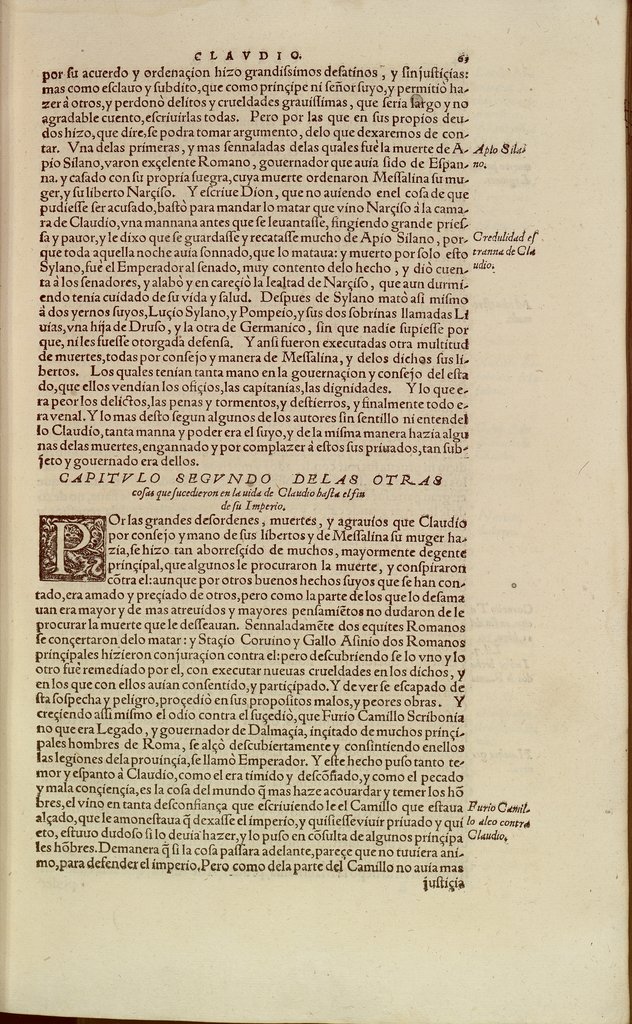 CLAVDIO. 63
por su acuerdo y ordenaçion hizo grandissimos desatinos, y sinjustiçias:
mas como esclauo y subdito, que como prinçipe ni señor suyo, y permitio ha-
zer à otros, y perdonò delitos y crueldades grauissimas, que seria largo y no
agradable cuento, escriuirlas todas. Pero por las que en sus propios deu-
dos hizo, que dire, se podra tomar argumento, delo que dexaremos de con-
tar. Vna delas primeras, y mas sennaladas delas quales fuè la muerte de A-
pio Silano, varon exçelente Romano, gouernador que auia sido de Espan-
na. y casado con su propria suegra, cuya muerte ordenaron Messalina su mu-
ger, y su liberto Narçiso. Y escriue Dion, que no auiendo enel cosa de que
pudiesse ser acusado, bastò para mandarlo matar que vino Narçiso à la cama-
ra de Claudio, vna mannana antes que se leuantasse, fingiendo grande pries-
sa y pauor, y le dixo que se guardasse y recatasse mucho de Apio Silano, por-
que toda aquella noche auia sonnado, que lo mataua: y muerto por solo esto
Sylano, fuè el Emperador al senado, muy contento delo hecho, y diò cuen-
ta à los senadores, y alabò y en careçiò la lealtad de Narçiso, que aun durmi-
endo tenia cuidado de su vida y salud. Despues de Sylano matò asi mismo
à dos yernos suyos, Luçio Sylano, y Pompeio, y sus dos sobrinas llamadas Li
uias, vna hija de Druso, y la otra de Germanico, sin que nadie supiesse por
que, ni les fuesse otorgada defensa. Y ansi fueron executadas otra multitud
de muertes, todas por consejo y manera de Messalina, y delos dichos sus li-
bertos. Los quales tenian tanta mano en la gouernaçion y consejo del esta
do, que ellos vendian los ofiçios, las capitanias, las dignidades. Y lo que e-
ra peor los delictos, las penas y tormentos, y destierros, y finalmente todo e-
ra venal. Y lo mas desto segun algunos de los autores sin sentillo ni entendel
lo Claudio, tanta manna y poder era el suyo, y de la misma manera hazia algu
nas delas muertes, engannado y por complazer à estos sus priuados, tan sub-
jeto y gouernado era dellos.
Apio Sila-
no.
Credulidad es
tranna de Cla
udio.
CAPITVLO SEGVNDO DELAS OTRAS
cosas que sucedieron en la uida de Claudio hasta el fin
de su Imperio.
POr las grandes desordenes, muertes, y agrauios que Claudio
por consejo y mano de sus libertos y de Messalina su muger ha-
zia, se hizo tan aborresçido de muchos, mayormente de gente
prinçipal, que algunos le procuraron la muerte, y conspiraron
cõtra el: aunque por otros buenos hechos suyos que se han con-
tado, era amado y preçiado de otros, pero como la parte de los que lo desama
uan era mayor y de mas atreuidos y mayores pensamiẽtos no dudaron de le
procurar la muerte que le desseauan. Sennaladamẽte dos equites Romanos
se conçertaron delo matar: y Staçio Coruino y Gallo Asinio dos Romanos
prinçipales hizieron conjuraçion contra el: pero descubriendo se lo vno y lo
otro fuè remediado por el, con executar nueuas crueldades en los dichos, y
en los que con ellos auian consentido, y partiçipado. Y de ver se escapado de
sta sospecha y peligro, proçediò en sus propositos malos, y peores obras. Y
creçiendo assi mismo el odio contra el suçediò, que Furio Camillo Scribonia
no que era Legado, y gouernador de Dalmaçia, inçitado de muchos prinçi-
pales hombres de Roma, se alçò descubiertamente y consintiendo enellos
las legiones dela prouinçia, se llamò Emperador. Y este hecho puso tanto te-
mor y espanto à Claudio, como el era timido y descõfiado, y como el pecado
y mala conçiençia, es la cosa del mundo q̃ mas haze acouardar y temer los hõ
bres, el vino en tanta desconfiança que escriuiendo le el Camillo que estaua
alçado, que le amonestaua q̃ dexasse el imperio, y quisiesse viuir priuado y qui
eto, estuuo dudoso si lo deuia hazer, y lo puso en cõsulta de algunos prinçipa
les hõbres. Demanera q̃ si la cosa passara adelante, pareçe que no tuuiera ani-
mo, para defender el imperio. Pero como dela parte del Camillo no auia mas
Furio Camil-
lo alço contra
Claudio.
justiçia